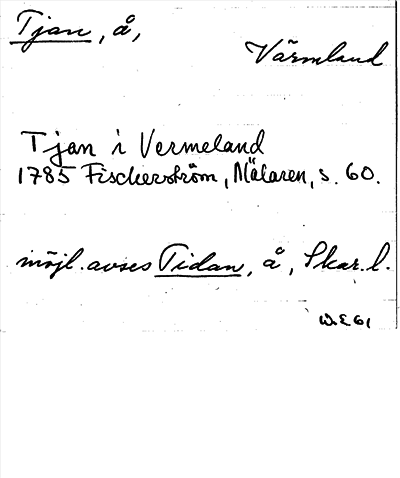 Tjan, å,
Värmland
Tjan i Vermeland
1785 Fischerström, Mälaren, s. 60.
möjl. avses Tidan, å, Skar. l.
W.E 61